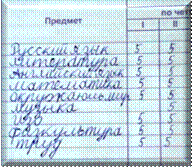 Предмет по чет
I II
Русский язык 5 5
литература 5 5
Английский язык 5 5
математика 5 5
окружающ мир 5 5
музыка 5 5
изо 5 5
физкультура 5 5
труд 5 5